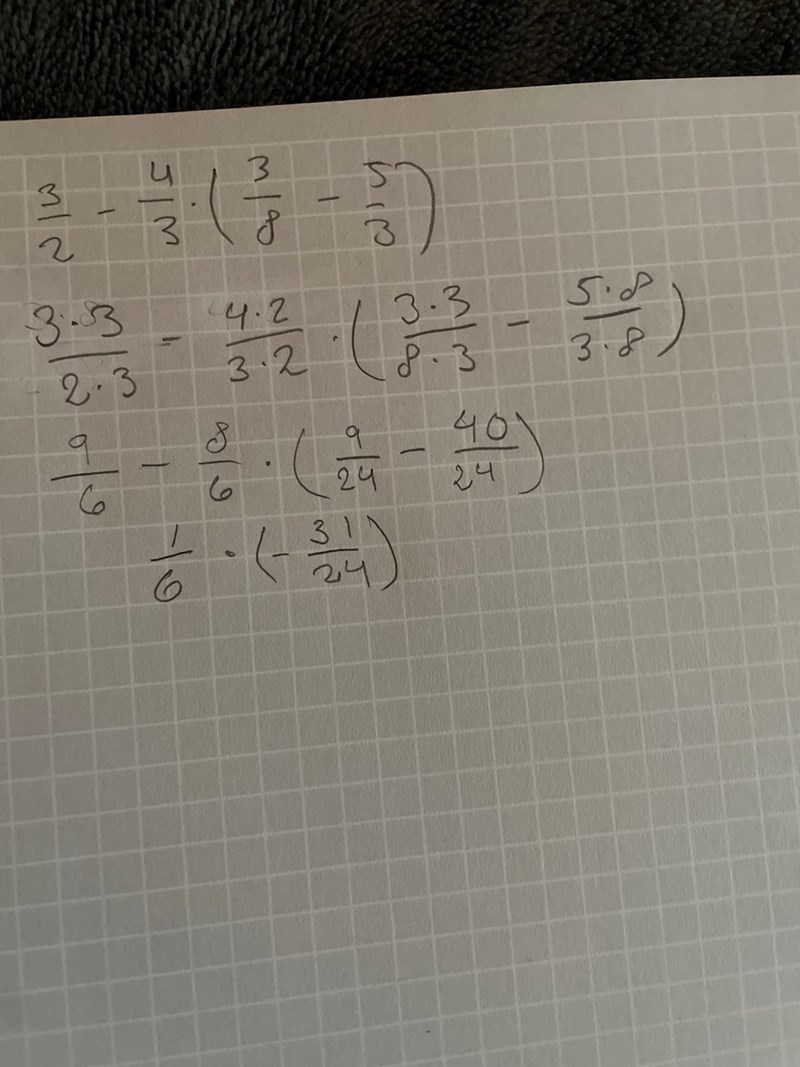 3/2 - 4/3 · (3/8 - 5/3)
3·3/2·3 - 4·2/3·2 · (3·3/8·3 - 5·8/3·8)
9/6 - 8/6 · (9/24 - 40/24)
1/6 · (-31/24)